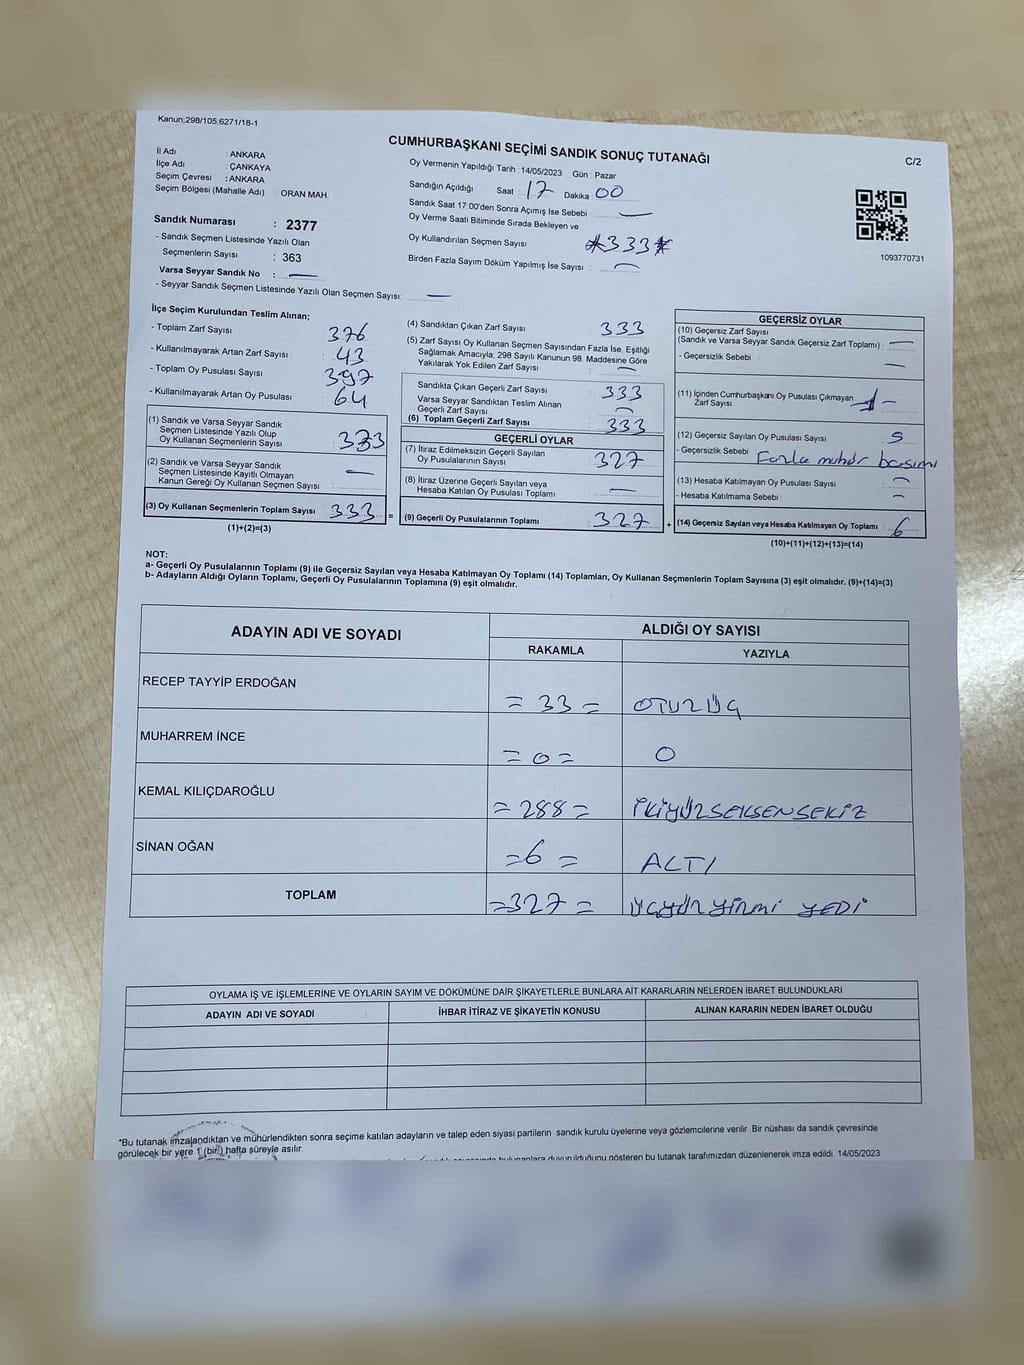 Kanun;298/105,6271/18-1
CUMHURBAŞKANI SEÇİMİ SANDIK SONUÇ TUTANAĞI
C/2
İl Adı : ANKARA
İlçe Adı : ÇANKAYA
Seçim Çevresi : ANKARA
Seçim Bölgesi (Mahalle Adı) : ORAN MAH.
Sandık Numarası : 2377
- Sandık Seçmen Listesinde Yazılı Olan
Seçmenlerin Sayısı : 363
Varsa Seyyar Sandık No : —
- Seyyar Sandık Seçmen Listesinde Yazılı Olan Seçmen Sayısı: —
Oy Vermenin Yapıldığı Tarih :14/05/2023 Gün : Pazar
Sandığın Açıldığı Saat : 17 Dakika : 00
Sandık Saat 17:00'den Sonra Açımış İse Sebebi : —
Oy Verme Saati Bitiminde Sırada Bekleyen ve
Oy Kullandırılan Seçmen Sayısı *333*
Birden Fazla Sayım Döküm Yapılmış İse Sayısı : —
1093770731
İlçe Seçim Kurulundan Teslim Alınan;
- Toplam Zarf Sayısı : 376
- Kullanılmayarak Artan Zarf Sayısı : 43
- Toplam Oy Pusulası Sayısı : 397
- Kullanılmayarak Artan Oy Pusulası : 64
(1) Sandık ve Varsa Seyyar Sandık
Seçmen Listesinde Yazılı Olup
Oy Kullanan Seçmenlerin Sayısı : 333
(2) Sandık ve Varsa Seyyar Sandık
Seçmen Listesinde Kayıtlı Olmayan
Kanun Gereği Oy Kullanan Seçmen Sayısı : —
(3) Oy Kullanan Seçmenlerin Toplam Sayısı : 333 =
(1)+(2)=(3)
(4) Sandıktan Çıkan Zarf Sayısı : 333
(5) Zarf Sayısı Oy Kullanan Seçmen Sayısından Fazla İse, Eşitliği
Sağlamak Amacıyla; 298 Sayılı Kanunun 98. Maddesine Göre
Yakılarak Yok Edilen Zarf Sayısı : —
Sandıkta Çıkan Geçerli Zarf Sayısı : 333
Varsa Seyyar Sandıktan Teslim Alınan
Geçerli Zarf Sayısı : —
(6) Toplam Geçerli Zarf Sayısı : 333
GEÇERLİ OYLAR
(7) İtiraz Edilmeksizin Geçerli Sayılan
Oy Pusulalarının Sayısı : 327
(8) İtiraz Üzerine Geçerli Sayılan veya
Hesaba Katılan Oy Pusulası Toplamı : —
(9) Geçerli Oy Pusulalarının Toplamı : 327 +
GEÇERSİZ OYLAR
(10) Geçersiz Zarf Sayısı
(Sandık ve Varsa Seyyar Sandık Geçersiz Zarf Toplamı) : —
- Geçersizlik Sebebi : —
(11) İçinden Cumhurbaşkanı Oy Pusulası Çıkmayan
Zarf Sayısı -1-
(12) Geçersiz Sayılan Oy Pusulası Sayısı : 5
- Geçersizlik Sebebi : Fazla mühür basımı
(13) Hesaba Katılmayan Oy Pusulası Sayısı : —
- Hesaba Katılmama Sebebi : —
(14) Geçersiz Sayılan veya Hesaba Katılmayan Oy Toplamı : 6
(10)+(11)+(12)+(13)=(14)
NOT:
a- Geçerli Oy Pusulalarının Toplamı (9) ile Geçersiz Sayılan veya Hesaba Katılmayan Oy Toplamı (14) Toplamları, Oy Kullanan Seçmenlerin Toplam Sayısına (3) eşit olmalıdır. (9)+(14)=(3)
b- Adayların Aldığı Oyların Toplamı, Geçerli Oy Pusulalarının Toplamına (9) eşit olmalıdır.
ADAYIN ADI VE SOYADI ALDIĞI OY SAYISI
RAKAMLA YAZIYLA
RECEP TAYYİP ERDOĞAN = 33 = OTUZÜÇ
MUHARREM İNCE = 0 = 0
KEMAL KILIÇDAROĞLU = 288 = İKİYÜZSEKSENSEKİZ
SİNAN OĞAN = 6 = ALTI
TOPLAM = 327 = ÜÇYÜZYİRMİ YEDİ
OYLAMA İŞ VE İŞLEMLERİNE VE OYLARIN SAYIM VE DÖKÜMÜNE DAİR ŞİKAYETLERLE BUNLARA AİT KARARLARIN NELERDEN İBARET BULUNDUKLARI
ADAYIN ADI VE SOYADI İHBAR İTİRAZ VE ŞİKAYETİN KONUSU ALINAN KARARIN NEDEN İBARET OLDUĞU
*Bu tutanak imzalandıktan ve mühürlendikten sonra seçime katılan adayların ve talep eden siyasi partilerin sandık kurulu üyelerine veya gözlemcilerine verilir. Bir nüshası da sandık çevresinde
görülecek bir yere 1 (bir) hafta süreyle asılır.
bulunanlara duyurulduğunu gösteren bu tutanak tarafımızdan düzenlenerek imza edildi. 14/05/2023